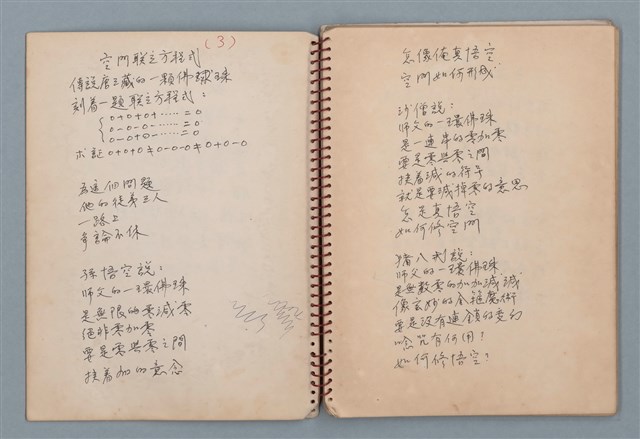 (3)
空門联立方程式
傳說唐三藏的一顆佛珠
刻着一題联立方程式：
0+0+0+……=0
0-0-0-……=0
0-0+0-……=0
求証0+0+0≠0-0-0≠0+0-0
為這個問題
他的徒弟三人
一路上
爭論不休
孫悟空說：
师父的一環佛珠
是無限的零減零
絕非零加零
要是零與零之間
挾着加的意念
怎像俺真悟空
空門如何形成
沙僧說：
师父的一環佛珠
是一連串的零加零
要是零與零之間
挾着減的符号
就是要減掉零的意思
怎是真悟空
如何修空門
猪八戒說：
师父的一環佛珠
是無数零的加加減減
像玄妙的金箍魔術
要是沒有連鎖的变幻
唸咒有何用？
如何修悟空？